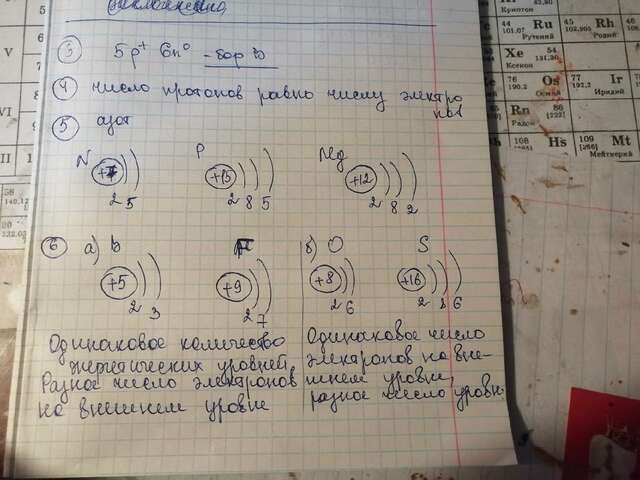 ③ 5p⁺ 6n⁰ – бор В
④ число протонов равно числу электро
нов
⑤ азот
N P Mg
+7 +15 +12
2 5 2 8 5 2 8 2
⑥ а) В F б) О S
+5 +9 +8 +16
2 3 2 7 2 6 2 8 6
Одинаковое количество
энергетических уровней.
Разное число электронов
на внешнем уровне
Одинаковое число
электронов на вне-
шнем уровне,
разное число уровн
Криптон
V
VI
44 Ru 45 Rh
101,07 102,905
Рутений Родий
Xe 54
131,30
Ксенон
76 Os 77 Ir
190,2 192,2
Осмий Иридий
Rn 86
[222]
Радон
108 Hs 109 Mt
[266]
Мейтнерий
58
140,12